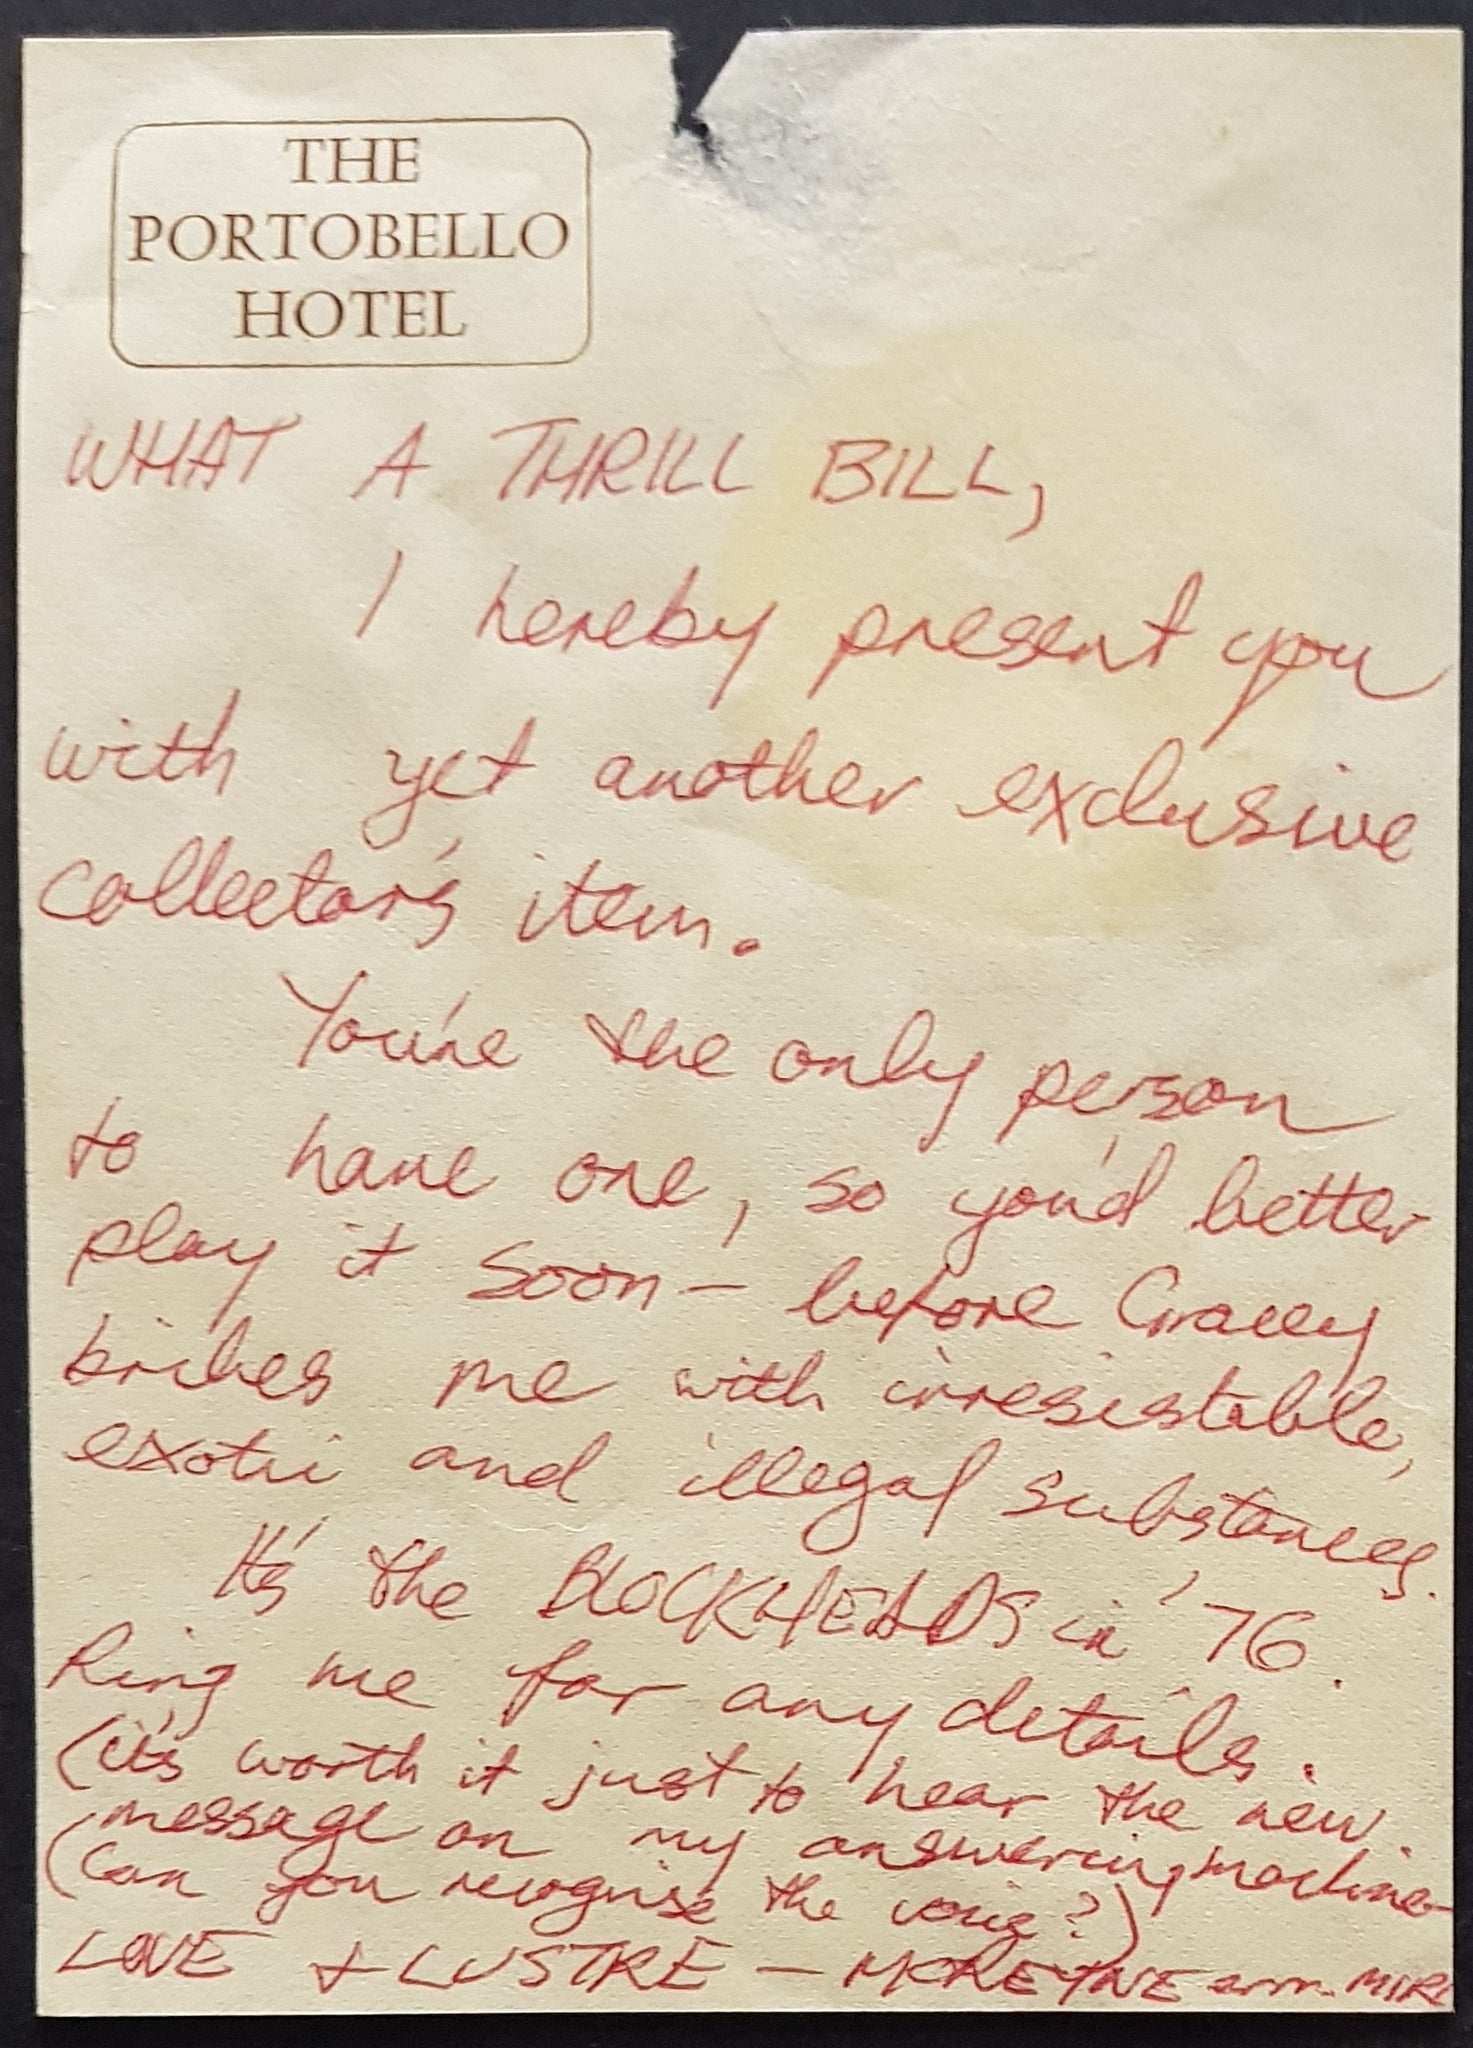 THE
PORTOBELLO
HOTEL
WHAT A THRILL BILL,
I hereby present you
with yet another exclusive
collector's item.
You're the only person
to have one, so you'd better
play it soon — before Gracey
bribes me with irresistable,
exotic and illegal substances.
It's the BLOCKHEADS in '76.
Ring me for any details.
(it's worth it just to hear the new
message on my answering machine –
(can you recognise the voice?)
LOVE & LUSTRE —